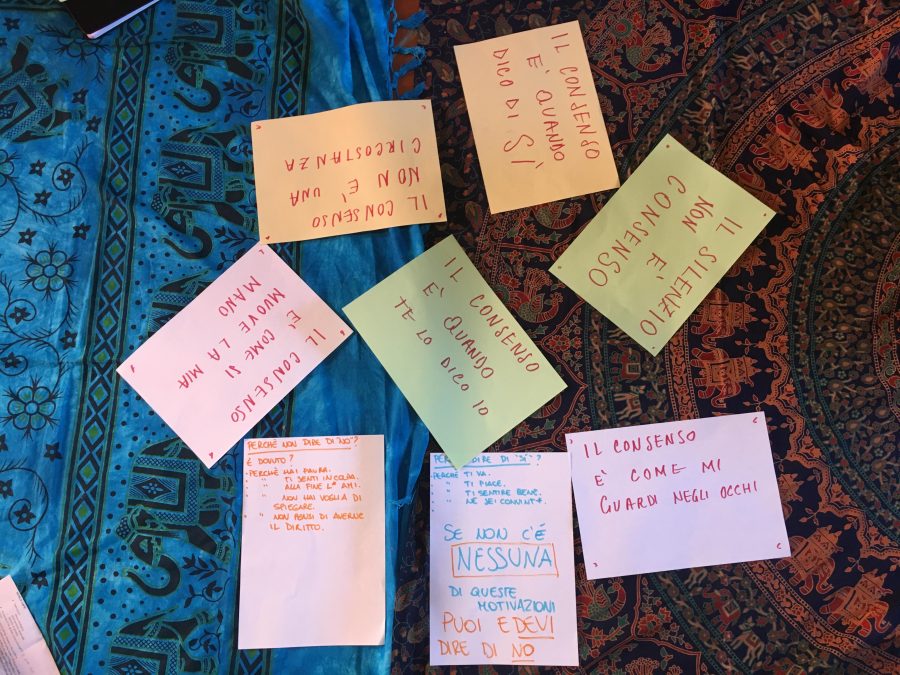 IL CONSENSO
E' QUANDO
DICO DI SÌ
IL CONSENSO
NON E' UNA
CIRCOSTANZA
IL SILENZIO
NON E'
CONSENSO
IL CONSENSO
E' COME SI
MUOVE LA MIA
MANO
IL CONSENSO
E' QUANDO
TE LO DICO IO
PERCHÉ NON DIRE DI "NO"?
É DOVUTO?
-PERCHÈ HAI PAURA.
- " TI SENTI IN COLPA.
- " ALLA FINE L* AMI.
- " NON HAI VOGLIA DI
SPIEGARE.
- " NON PENSI DI AVERNE
IL DIRITTO.
DIRE DI "SÌ"?
-PERCHÈ TI VA.
- " TI PIACE.
- " TI SENTIRE BENE.
- " NE SEI CONVINT*.
SE NON C'É
NESSUNA
DI QUESTE
MOTIVAZIONI
PUOI E DEVI
DIRE DI NO
IL CONSENSO
È COME MI
GUARDI NEGLI OCCHI